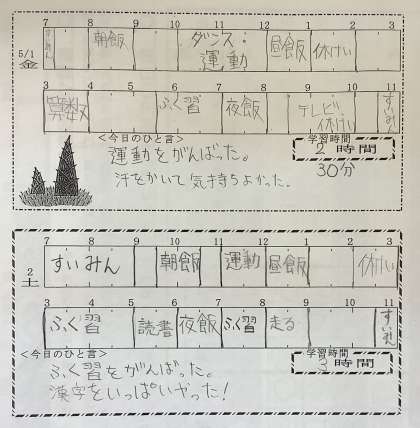 7 8 9 10 11 12 1 2 3
5/1
金
すいみん 朝飯 ダンス・運動 昼飯 休けい
3 4 5 6 7 8 9 10 11
算数 ふく習 夜飯 テレビ、休けい すいみん
<今日のひと言>
学習時間
2時間
30分
運動をがんばった。
汗をかいて気持ちよかった。
7 8 9 10 11 12 1 2 3
2
土
すいみん 朝飯 運動 昼飯 休けい
3 4 5 6 7 8 9 10 11
ふく習 読書 夜飯 ふく習 走る すいみん
<今日のひと言>
学習時間
3時間
ふく習をがんばった。
漢字をいっぱいやった!